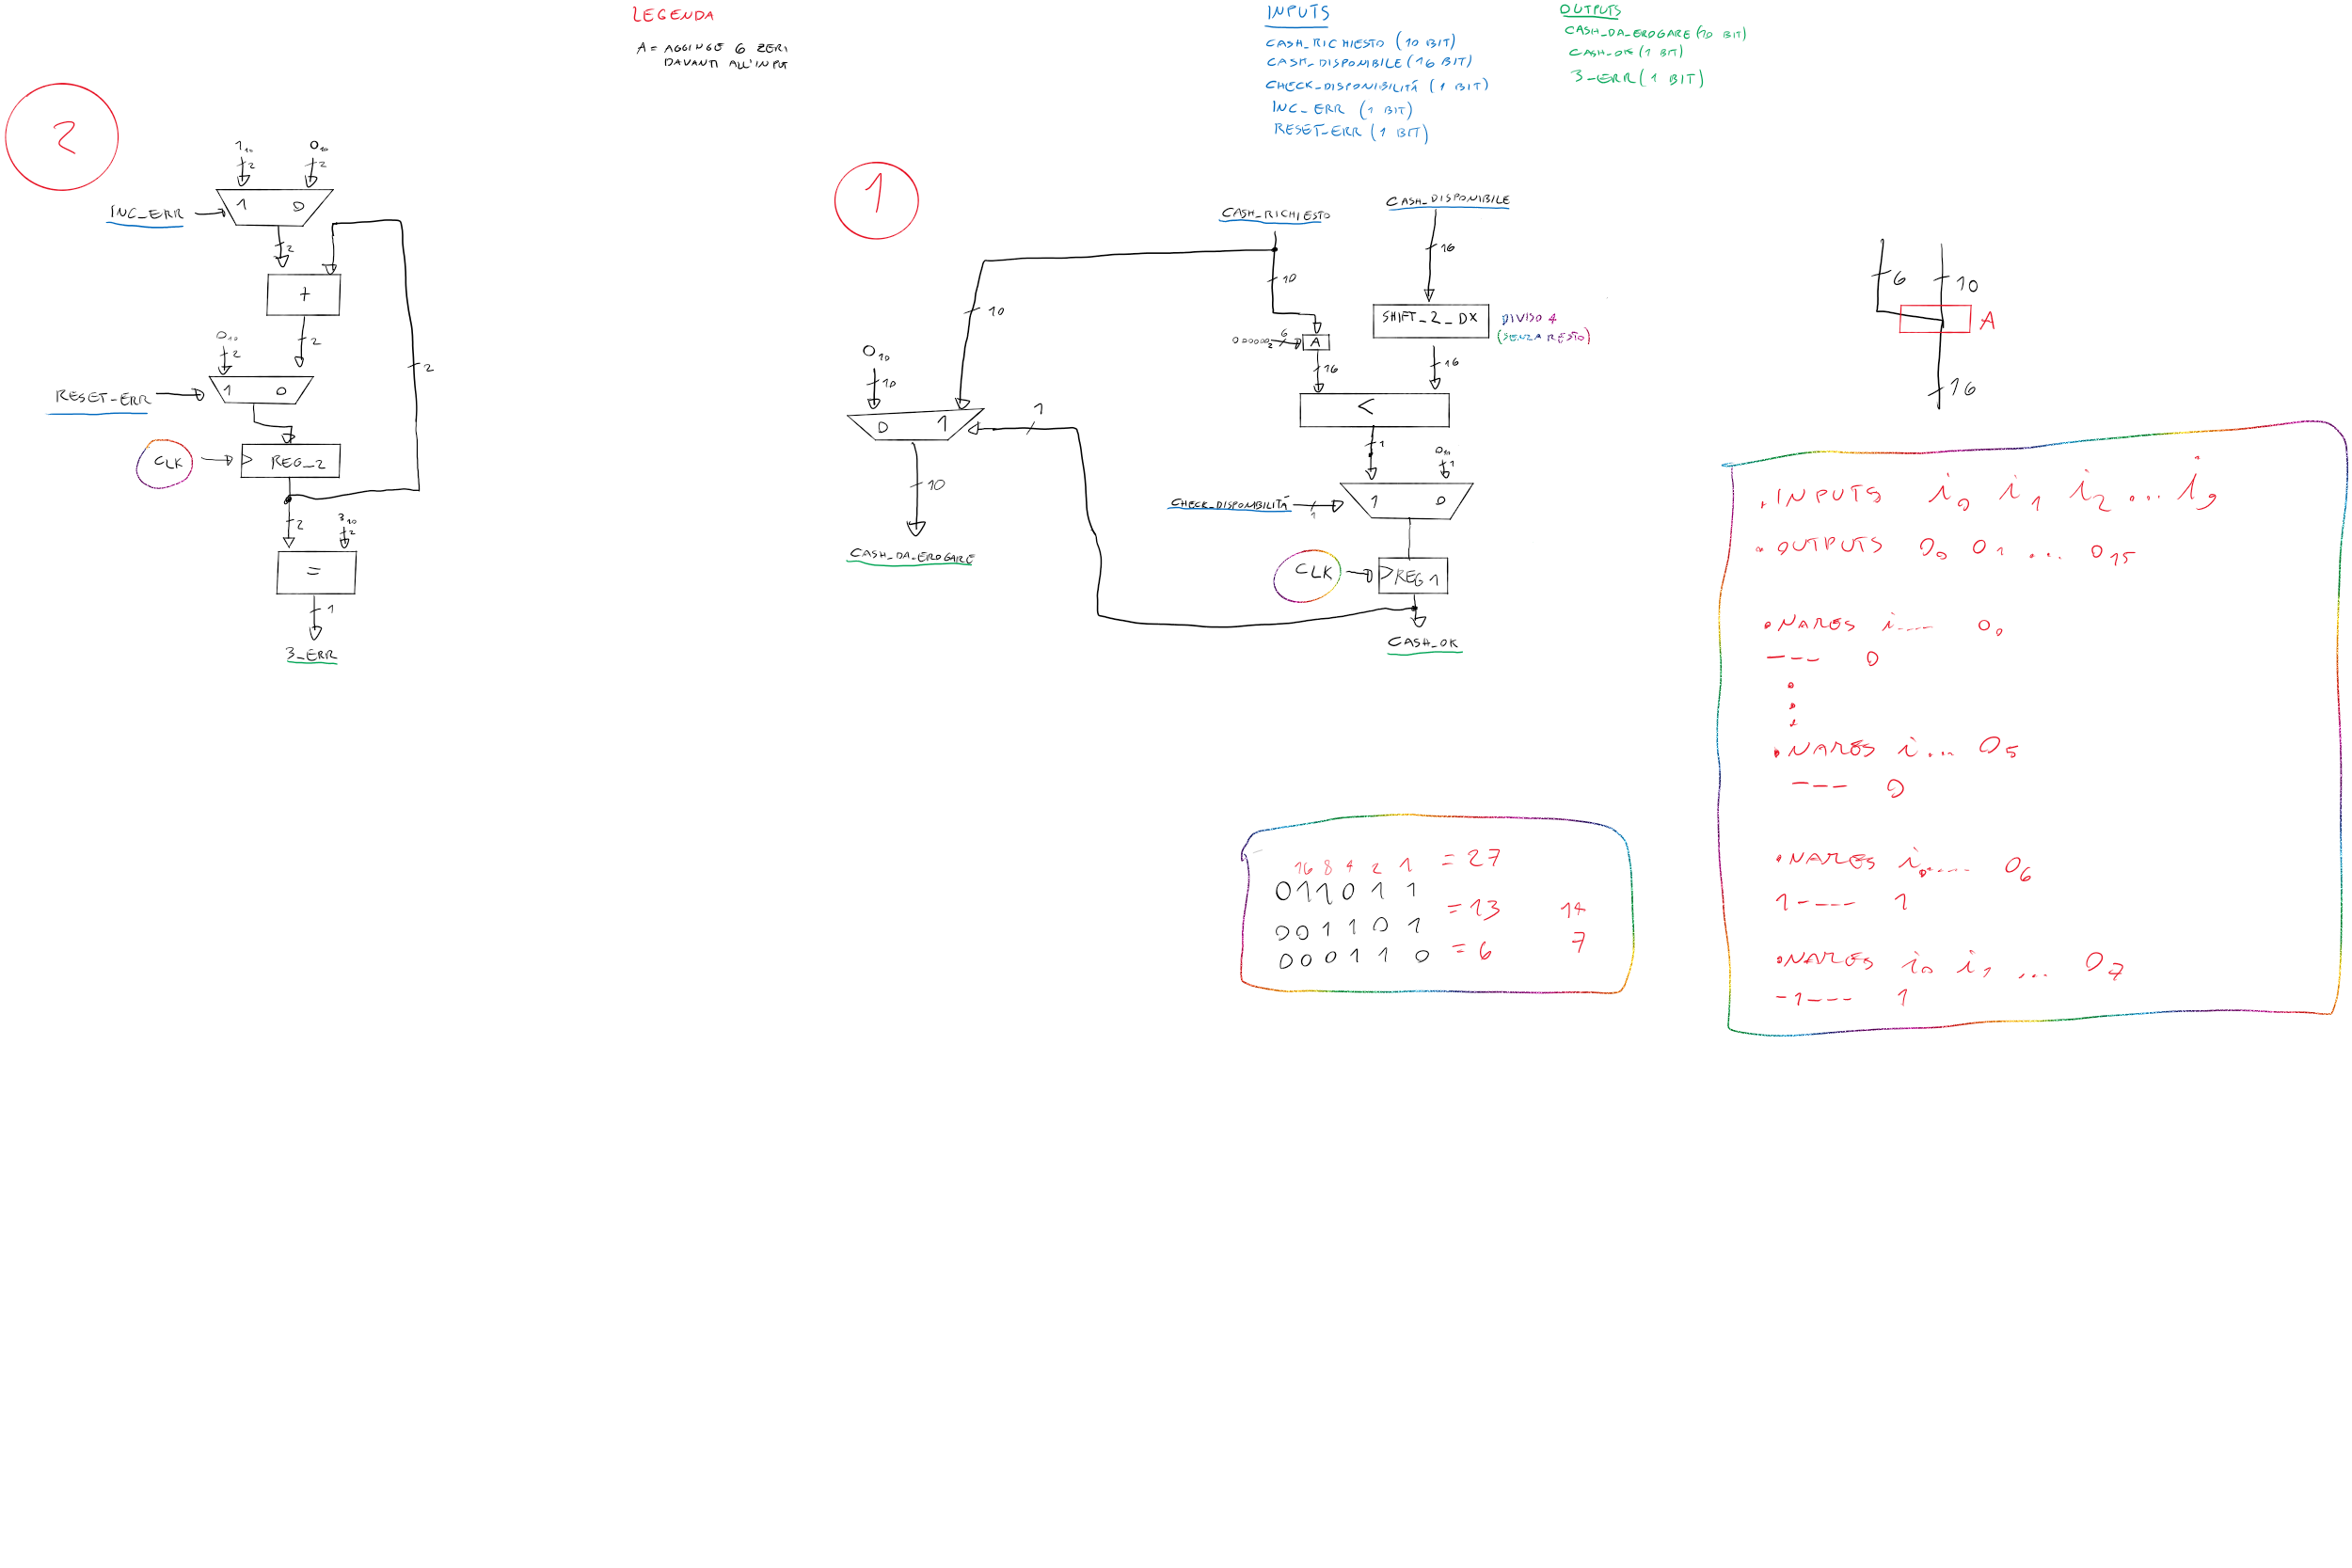 LEGENDA
A = AGGIUNGE 6 ZERI
DAVANTI ALL'INPUT
INPUTS
CASH_RICHIESTO (10 BIT)
CASH_DISPONIBILE (16 BIT)
CHECK_DISPONIBILITÁ (1 BIT)
INC_ERR (1 BIT)
RESET_ERR (1 BIT)
OUTPUTS
CASH_DA_EROGARE (10 BIT)
CASH_OK (1 BIT)
3_ERR (1 BIT)
2
1₁₀ 0₁₀
2 2
INC_ERR 1 0
2
+
0₁₀
2 2
2
RESET_ERR 1 0
CLK REG_2
2 3₁₀ 2
=
1
3_ERR
1
CASH_RICHIESTO CASH_DISPONIBILE
16
10
10
SHIFT_2_DX DIVISO 4
(SENZA RESTO)
000000₂ 6 A
0₁₀
10
16 16
<
0 1
1
1 0₁₀ 1
CHECK_DISPONIBILITÁ 1 1 0
10
CASH_DA_EROGARE
CLK REG 1
CASH_OK
6 10
A
16
.INPUTS i₀ i₁ i₂ ... i₉
.OUTPUTS O₀ O₁ ... O₁₅
.NAMES i.... O₀
--- 0
.NAMES i... O₅
--- 0
.NAMES i₀.... O₆
1---- 1
.NAMES i₀ i₁ ... O₇
-1--- 1
16 8 4 2 1 = 27
011011
= 13 14
001101
= 6 7
000110